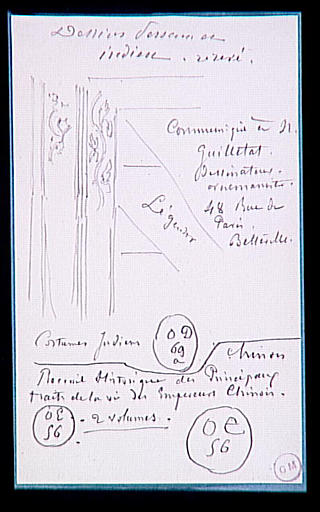 Dessins
indiens
Communiqué à M.
Guilletat.
Dessinateur.
ornemaniste.
48 Rue de
Paris.
Belleville.
Légendes
Costumes Indiens
OD
69
a
Chinois
Recueil Historique des Principaux
traits de la vie des Empereurs Chinois.
OE
56
2 volumes.
OE
56
GM